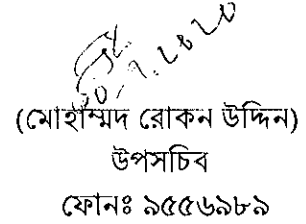 (মোহাম্মদ রোকন উদ্দিন)
উপসচিব
ফোনঃ ৯৫৫৬৯৮৯